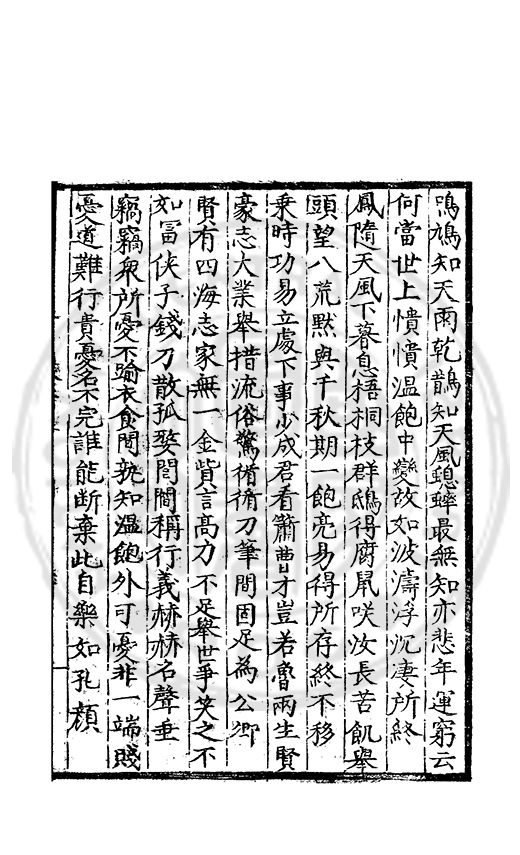 鳴鳩知天雨乾鵲知天風蟋蟀最無知亦悲年運窮云
何當世上憒憒溫飽中變故如波濤浮沉淒所終
鳳隨天風下暮息梧桐枝群鴟得腐鼠咲汝長苦飢舉
頭望八荒默與千秋期一飽亮易得所存終不移
乗時功易立處下事少成君看蕭曹才豈若魯兩生賢
豪志大業舉措流俗驚循循刀筆間固足為公卿
賢有四海志家無一金貲言高力不足舉世爭笑之不
如富俠子錢刀散孤嫠閭閻稱行義赫赫名聲垂
竊竊衆所憂不踰衣食間孰知溫飽外可憂非一端賤
憂道難行貴憂名不完誰能斷棄此自樂如孔顏